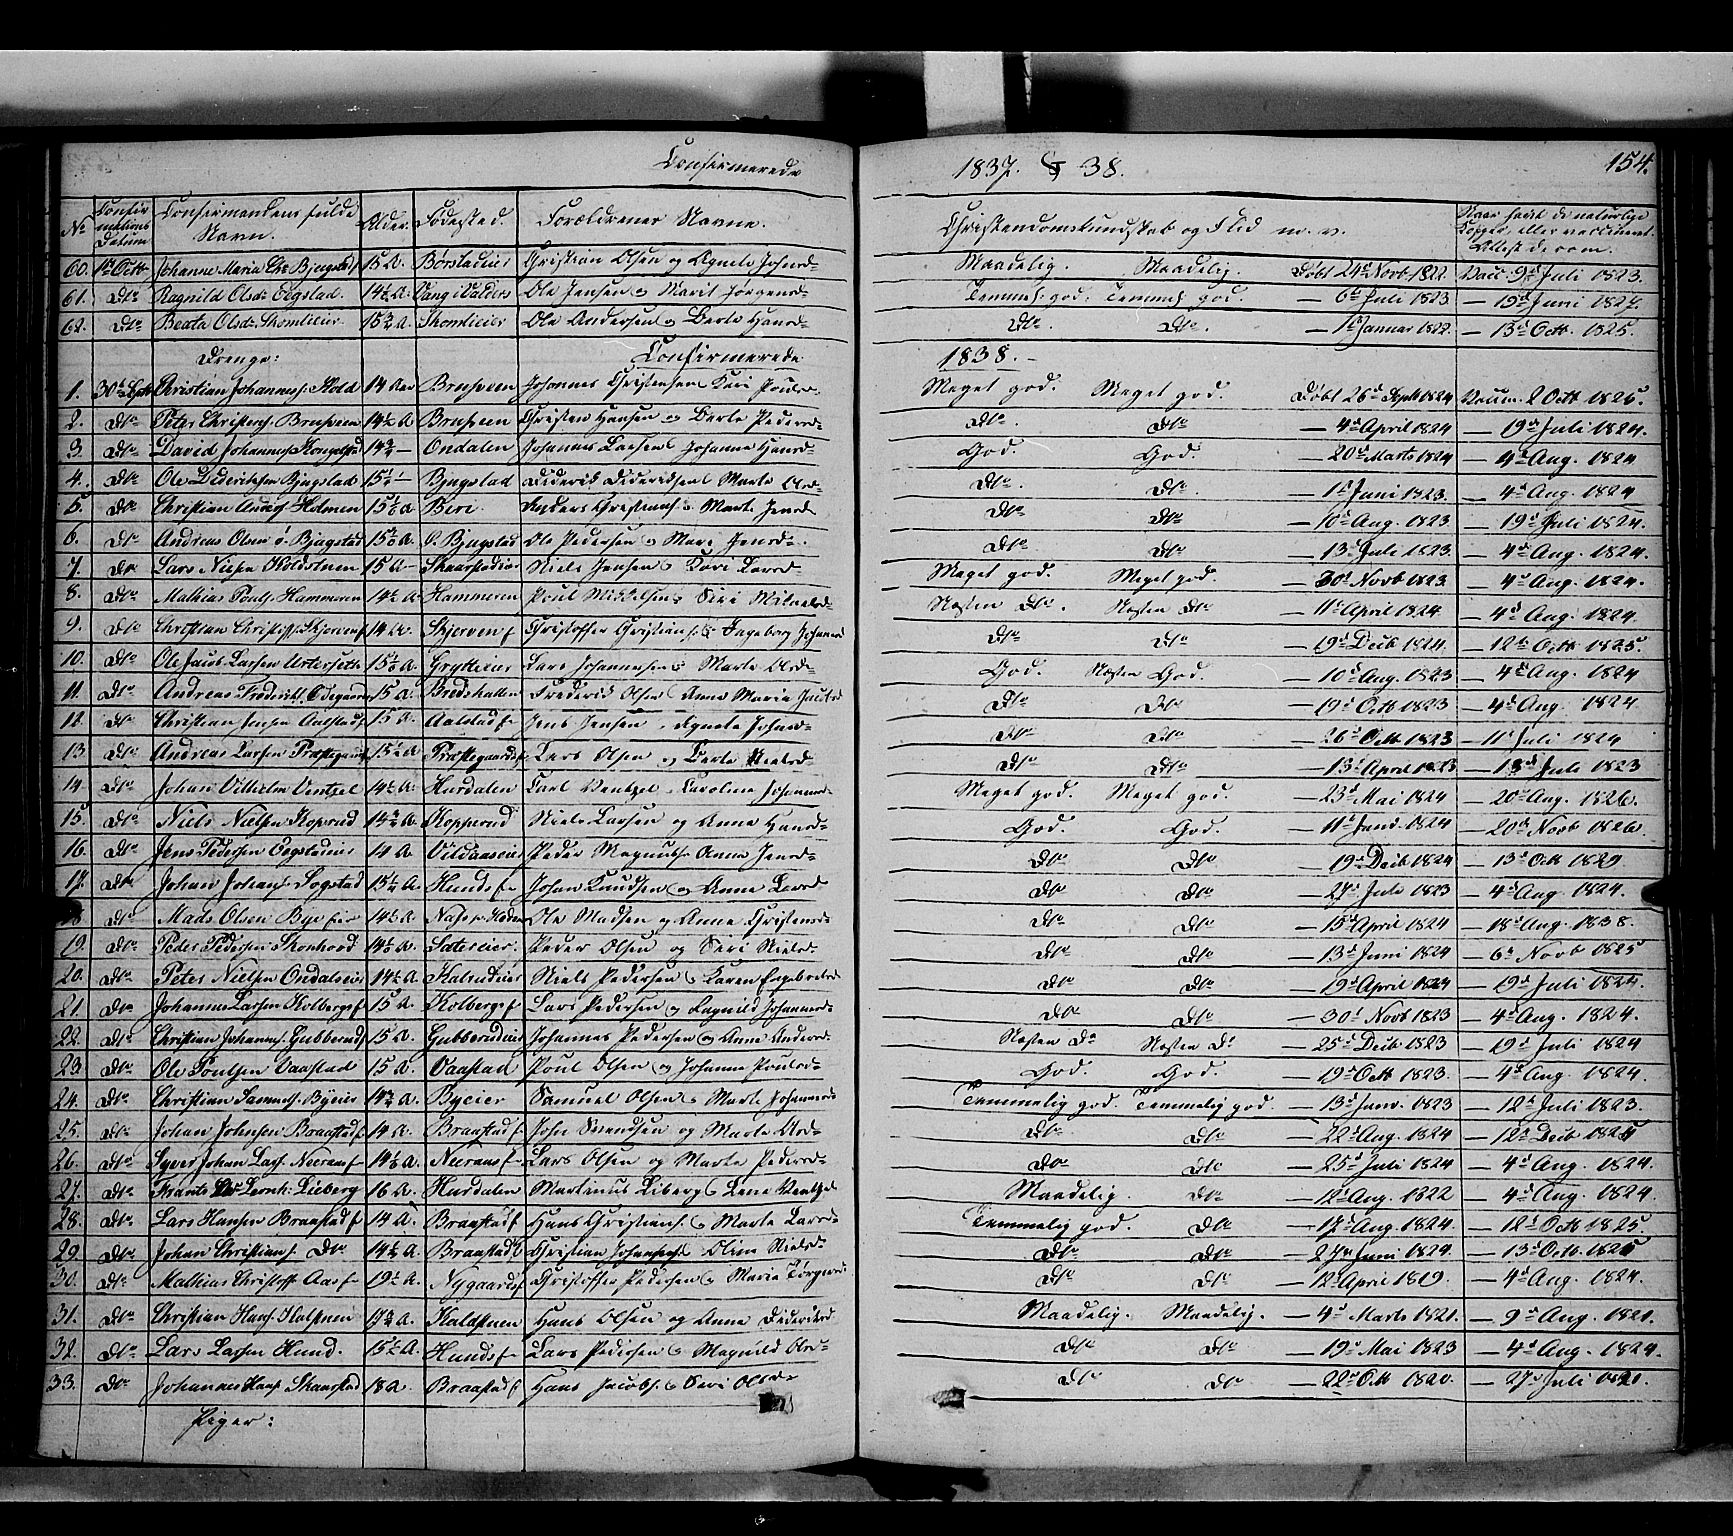 Confirmerede 1837. & 38. 154.
No Confirmations Datum Confirmandens fulde Navn. Alder. Fødested. Forældrenes Navne. Christendomskundskab og Flid m. v. Naar havt de naturlige Kopper eller vaccineret. Attest derom.
60. 1ste Octb Johanne Maria Bjugstad 15 A. Børstadeier Christian Olsen og Agnete Johnsd. Maadelig. Maadelig. Døbt 24d Novb 1822. Vacc. 9d Juli 1823.
61. Dto Ragnild Olsdr Øegstad. 14½ A. Vang i Valders Ole Jensen og Marit Jørgensd. Temmel: god: Temmel: god. — 6d Juli 1823 — 19d Juni 1827.
62. Dto Beata Olsdr Skomlieier 15¾ A. Skomlieier Ole Andersen og Berte Hansd. Dto. Dto. — 1d Januar 1822. — 13d Octb. 1825.
Drenge: Confirmerede 1838.
1. 30d Sept Christian Johannes: Kold 14 Aar Brusveen Johannes Christensen Kari Pouls Meget god. Meget god. Døbt 26d Septb 1824 Vacc. 2 Octb 1825.
2. Dto Peter Christens: Brusveen 14½ A Brusveen Christen Hansen og Berte Pedersd Dto. Dto — 4d April 1824 — 19d Juli 1824.
3. Dto David Johannes: 14¾ — Ondalen Johannes Larsen Johanne Hansd God. God. — 20d Marts 1824 — 4d Aug. 1824
4. Dto Ole Dideriksen Bjugstad 15¼ — Bjugstad Diderik Dideriksen Marte Olsd Dto. Dto. — 1d Juni 1823. — 4d Aug. 1824
5. Dto Christian Anders: Holmen 15½ A. Biri. Anders Christians: Marte Jensd Dto Dto — 10d Aug. 1823 — 19d Juli 1824.
6. Dto Andreas Olsen ø. Bjugstad 15¾ A. ø. Bjugstad Ole Pedersen og Mari Jensd. Dto Dto — 13d Juli 1823. — 4d Aug. 1824.
7. Dto Lars Nielsen 15 A — Niels Jensen Kari Larsd Meget god. Meget god. — 30d Novb 1823 — 4d Aug. 1824.
8. Dto Mathias Pouls: Hammeren 14½ A Hammeren Poul Mikkelsen Siri Mikkelsd Næsten Dto. Næsten Dto — 11d April 1824. — 4d Aug. 1824.
9. Dto Christian Christoff: Skjerven f 14 A. Skjerven f Christoffer Christians: & Ingeborg Johannesd Dto Dto — 19d Decb 1824. — 12d Octb 1825.
10. Dto Ole Jacob Larsen 15 A. Grytteeier Lars Johannesen Marte Olsd God. Næsten God. — 10d Aug. 1823 — 4d Aug. 1824
11. Dto Andreas Frederik: Ødegaarden 15 A. Bredskallen Frederik Olsen Anne Maria Jacobsd Dto Dto — 19d Octb 1823 — 4d Aug. 1824
12. Dto Christian Jensen Aalstad f 15 A. Aalstad f Jens Jensen Agnete Johnsd Dto Dto — 26d Octb 1823 — 11d Juli 1824
13 Dto Andreas Larsen Præstegaard 15½ A Præstegaardsf. Lars Olsen og Berte Nielsd Dto Dto — 13d April 1823 — 18d Juli 1823
14. Dto Johan Vilhelm Ventzel 14½ A. Hurdalen Carl Ventzel Caroline Johannesd Meget god. Meget god. — 23d Mai 1824 — 20d Aug. 1826.
15. Dto Niels Nielsen Kopperud 14¾ A. Kopperud Niels Larsen og Anne Hansd God. God. — 11d Janu 1824 — 20d Novb 1826.
16. Dto Jens Pedersen 14 A. Vildaaseier Peder Magnus: Anne Jensd Dto Dto — 19d Decb 1824 — 13d Octb 1829
17. Dto Johan Johans: Sogstad 15¼ A. Hunds f Johan Knudsen og Anne Larsd Dto Dto — 27d Juli 1823 — 4d Aug 1824.
18 Dto Mads Olsen Bye f 14½ A. Ole Madsen og Anne Christensd Dto Dto — 15d April 1824 — 18d Aug. 1838.
19. Dto Peder Pedersen Skonhovd 14 A. Sætereier. Peder Olsen og Siri Nielsd Dto Dto — 13d Juni 1824 — 6d Novb 1825
20. Dto Peter Nielsen Ondalseier 14½ A. Niels Pedersen Karen Engebretsd Dto Dto — 19d April 1824 — 19d Juli 1824.
21. Dto Johannes Larsen Kolbergs f 15 A. Kolbergs f Lars Pedersen og Ragnild Johannesd Dto Dto — 30d Novb 1823 — 4d Aug. 1824.
22. Dto Christian Johanns: Gubberud 15 A. Gubberudeier Johannes Pedersen og Anne Andersd Næsten Do Næsten Do — 25d Decb 1823 — 19d Juli 1824
23. Dto Ole Poulsen Vaastad 15 A. Vaastad Poul Olsen og Johanne Poulsd. God. God. — 19d Octb 1823. — 4d Aug. 1824.
24. Dto Christian Samuels: Byeier 14¾ A. Byeier Samuel Olsen Marte Johannesd Temmelig god. Temmelig god. — 13d Janr. 1823 — 12d Juli 1823.
25. Dto Johan Johnsen Braastad f 14 A. Braastad f John Svendsen og Marte Olsd Dto Dto — 22d Aug. 1824 — 12d Decb 1825
26. Dto Syver Johan Lars: f 14½ A. f Lars Olsen og Marte Pedersd Dto Dto — 25d Juli 1824 — 4d Aug. 1824.
27. Dto Frants Leonh: Lieberg 16 A. Hurdalen Martinus Liberg Lene Ventzel Maadelig. Dto — 12d Aug. 1822 — 4d Aug. 1824.
28. Dto Lars Hansen Braastad f 14 A. Braastad f Hans Christians: Marte Larsd Temmelig god. Dto — 17d Aug. 1824. — 12d Octb 1825
29. Dto Johan Christians: Dto 14¼ A. Braastad f Christian Johannes: Olina Nielsd Dto Dto — 27d Juni 1824. — 13d Octb. 1825
30. Dto Mathias Christoff: Aas f 19½ A. Nygaards f Christoffer Pedersen Maria Jørgensd Dto Dto — 12d April 1819. — 4d Aug. 1824.
31. Dto Christian Hans: 17¾ A. Hans Olsen og Anne Dideriksd Maadelig. Maadelig. — 4d Marts 1821. — 9d Aug. 1821.
32. Dto Lars Larsen Hund. 15½ A Hunds f Lars Pedersen Magnild Olsd Dto Dto — 19d Mai 1823 — 4d Aug. 1824.
33. Dto Johannes Hans: Skaarstad 18 A. Braastad f Hans Jacobs: Siri Olsd Dto Dto — 22d Octb 1820. — 27d Juli 1821.
Piger: